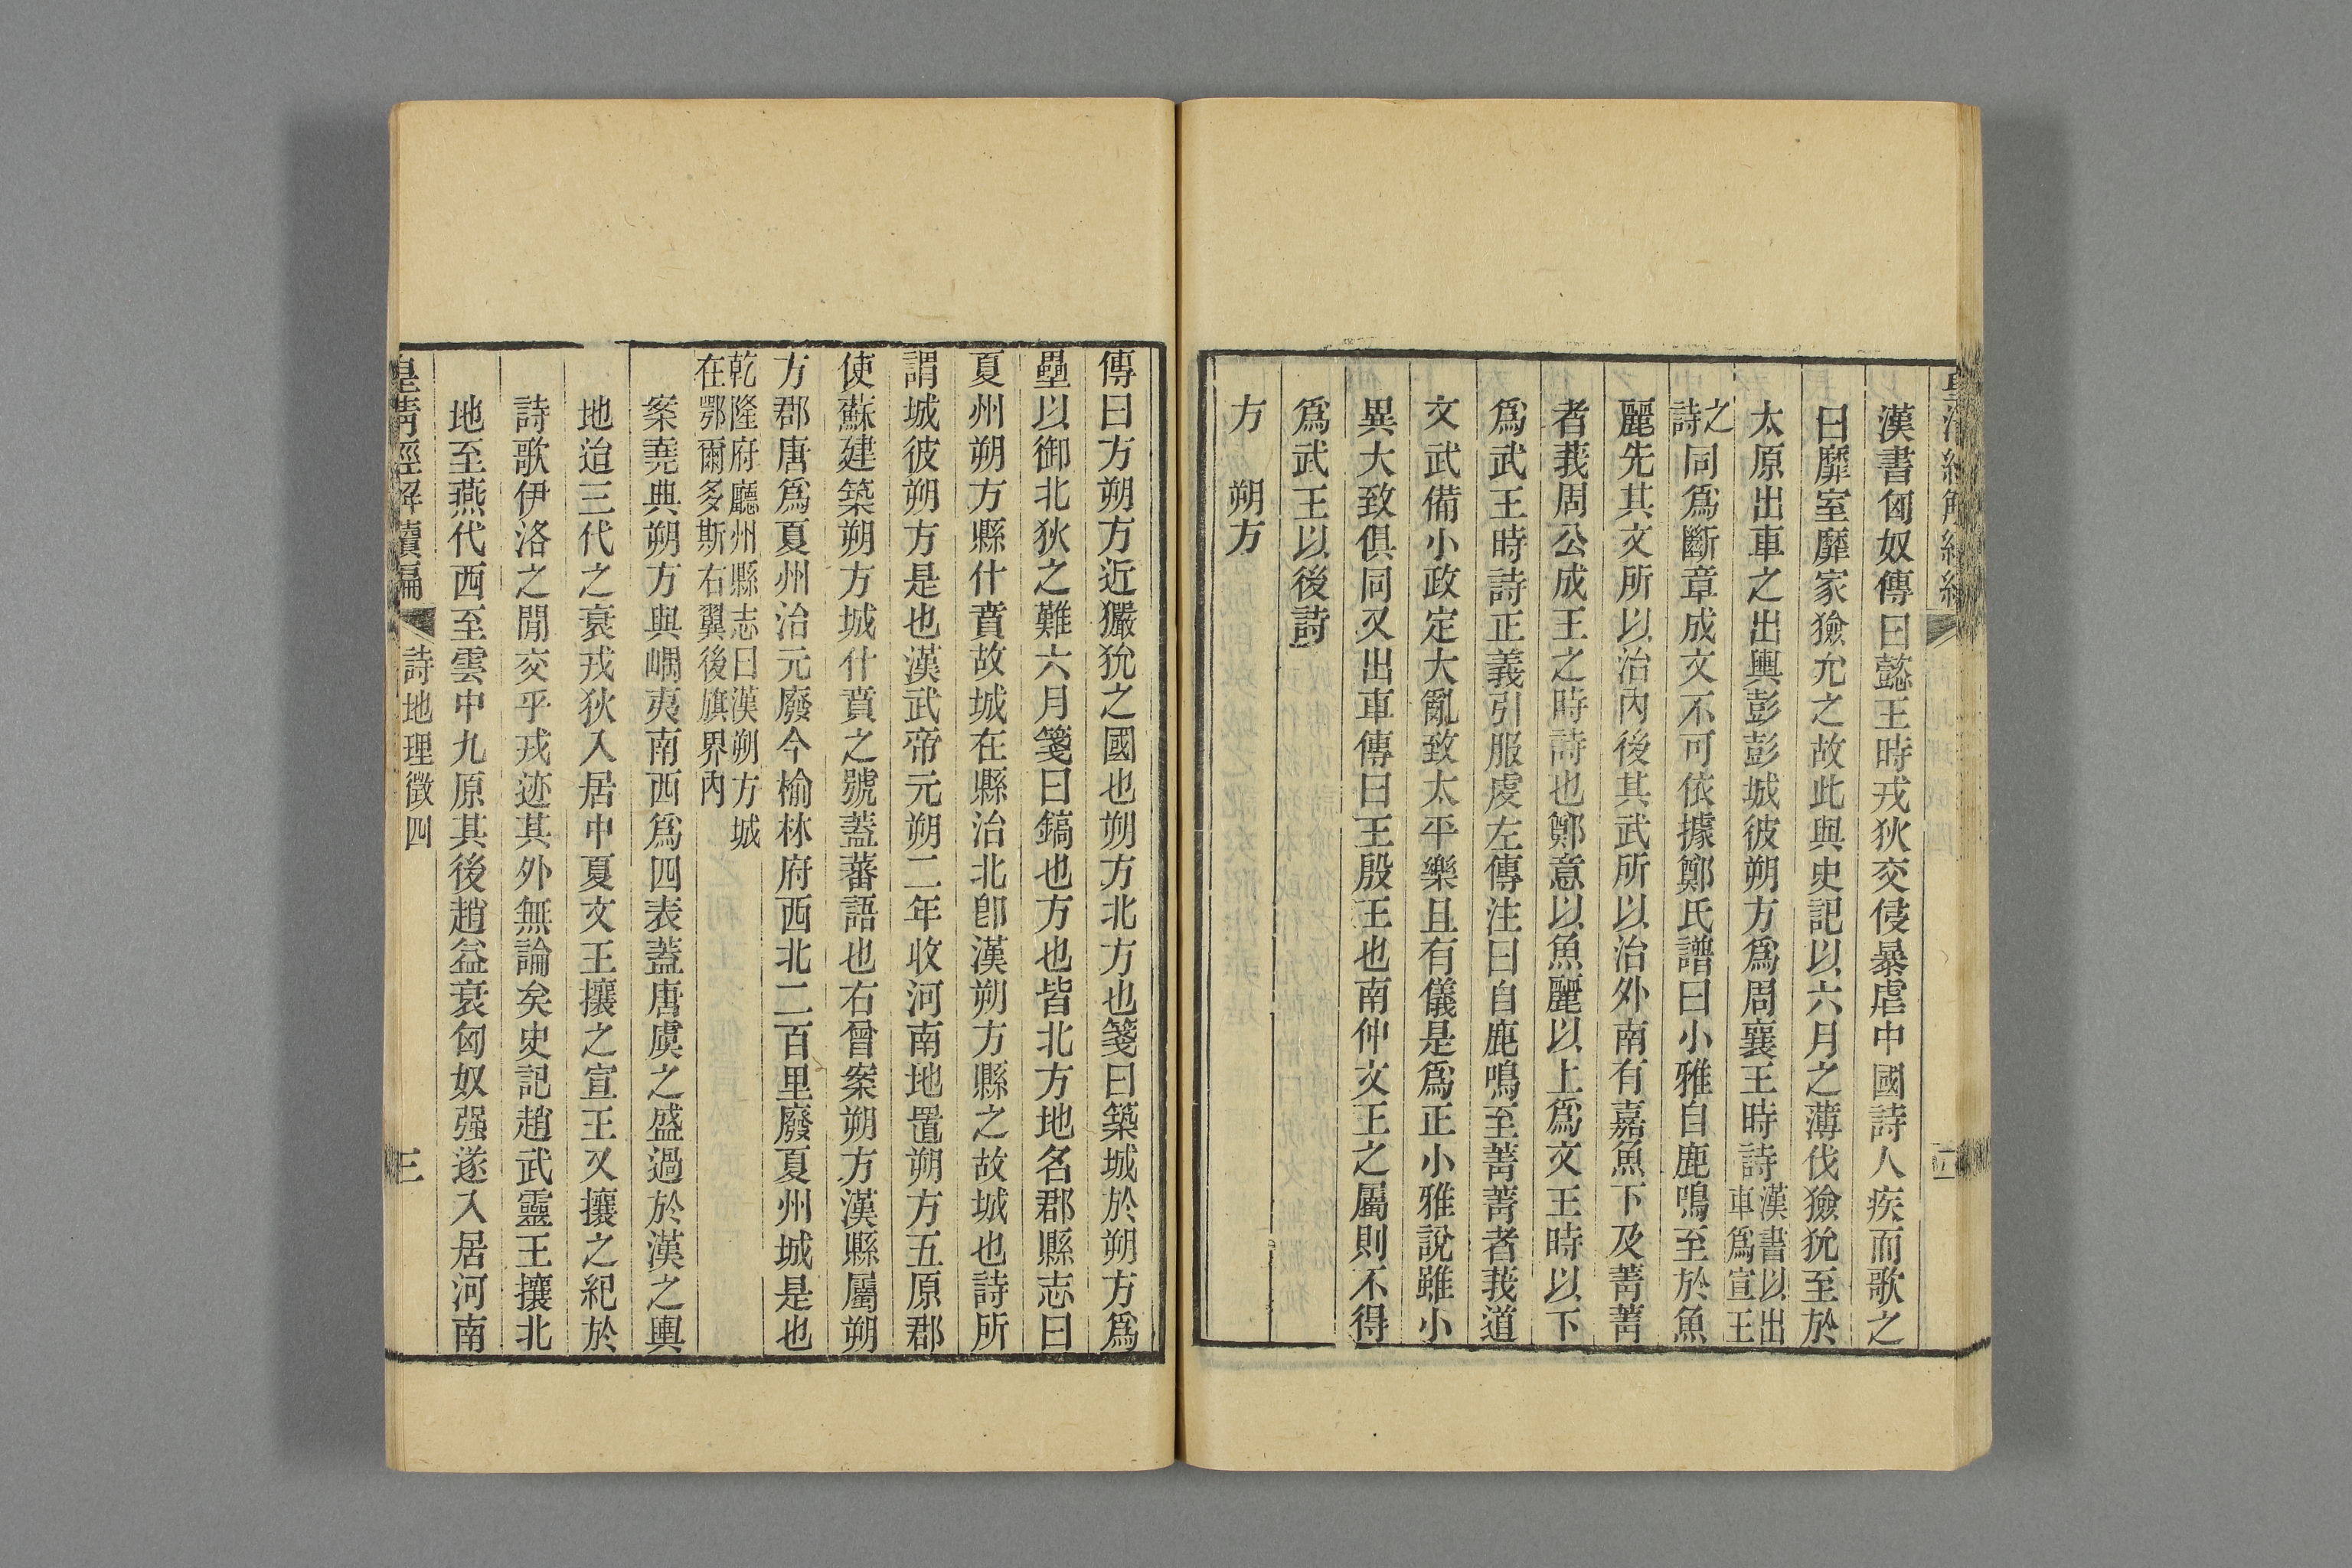 漢書匈奴傳曰懿王時戎狄交侵暴虐中國詩人疾而歌之
曰靡室靡家獫允之故此與史記以六月之薄伐獫狁至於
太原出車之出輿彭彭城彼朔方爲周襄王時詩漢書以出車爲宣王
之詩同爲斷章成文不可依據鄭氏譜曰小雅自鹿鳴至於魚
麗先其文所以治內後其武所以治外南有嘉魚下及菁菁
者莪周公成王之時詩也鄭意以魚麗以上爲文王時以下
爲武王時詩正義引服虔左傳注曰自鹿鳴至菁菁者莪道
文武備小政定大亂致太平樂且有儀是爲正小雅說雖小
異大致俱同又出車傳曰王殷王也南仲文王之屬則不得
爲武王以後詩
方 朔方
傳曰方朔方近玁狁之國也朔方北方也箋曰築城於朔方爲
壘以御北狄之難六月箋曰鎬也方也皆北方地名郡縣志曰
夏州朔方縣什賁故城在縣治北卽漢朔方縣之故城也詩所
謂城彼朔方是也漢武帝元朔二年收河南地置朔方五原郡
使蘇建築朔方城什賁之號蓋蕃語也右曾案朔方漢縣屬朔
方郡唐爲夏州治元廢今榆林府西北二百里廢夏州城是也
乾隆府廳州縣志曰漢朔方城
在鄂爾多斯右翼後旗界內
案堯典朔方與嵎夷南西爲四表蓋唐虞之盛過於漢之輿
地迨三代之衰戎狄入居中夏文王攘之宣王又攘之紀於
詩歌伊洛之閒交乎戎迹其外無論矣史記趙武靈王攘北
地至燕代西至雲中九原其後趙益衰匈奴强遂入居河南
皇清經解續編 詩地理徵四 三